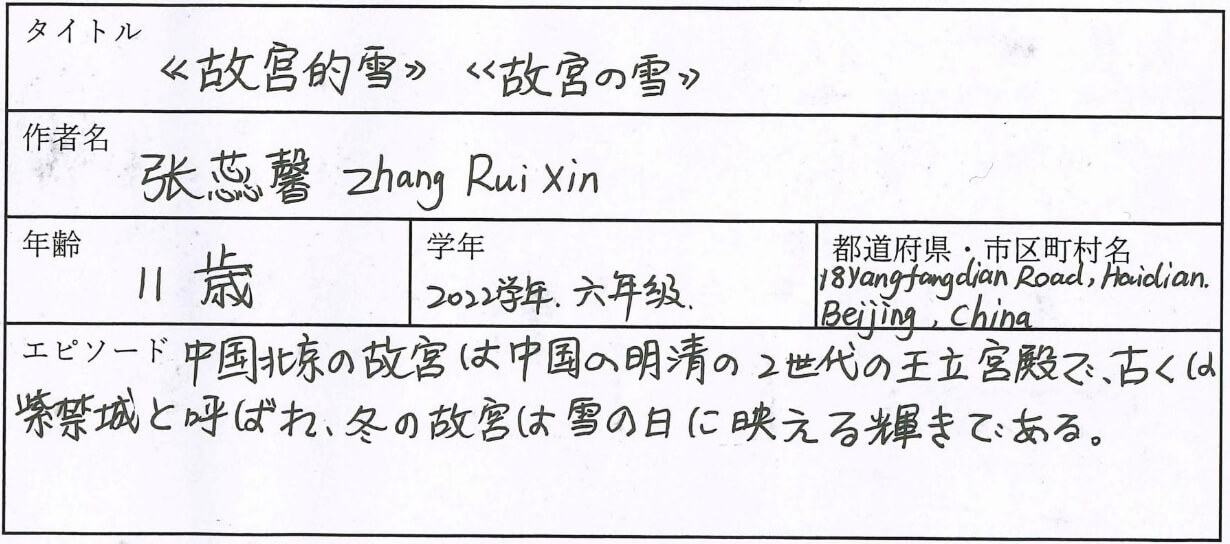 タイトル
《故宫的雪》 《故宮の雪》
作者名
张蕊馨 Zhang Rui Xin
年齢
11 歳
学年
2022学年. 六年级.
都道府県・市区町村名
18Yangfangdian Road, Haidian.
Beijing, China
エピソード 中国北京の故宮は中国の明清の2世代の王立宮殿で、古くは
紫禁城と呼ばれ、冬の故宮は雪の日に映える輝きである。